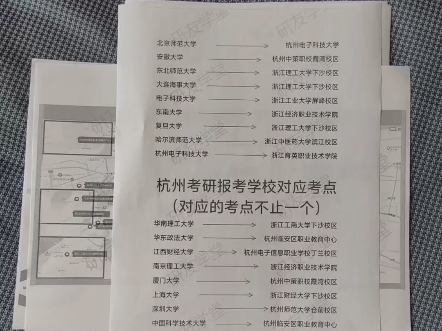 北京师范大学 → 杭州电子科技大学
安徽大学 → 杭州中策职校霞湾校区
东北师范大学 → 浙江理工大学下沙校区
大连海事大学 → 浙江理工大学下沙校区
电子科技大学 → 浙江工业大学屏峰校区
东南大学 → 浙江经济职业技术学院
复旦大学 → 浙江理工大学下沙校区
哈尔滨师范大学 → 浙江中医药大学滨江校区
杭州电子科技大学 → 浙江育英职业技术学院
杭州考研报考学校对应考点
（对应的考点不止一个）
华南理工大学 → 浙江工商大学下沙校区
华东政法大学 → 杭州临安区职业教育中心
江西财经大学 → 杭州电子信息职业学校丁兰校区
南京理工大学 → 浙江经济职业技术学院
厦门大学 → 杭州中策职校霞湾校区
上海大学 → 浙江财经大学下沙校区
深圳大学 → 杭州师范大学仓前校区
中国科学技术大学 → 杭州临安区职业教育中心